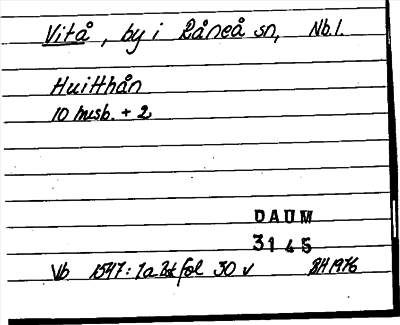 Vitå, by i Råneå sn, Nb.l.
Huitthån
10 husb. + 2
DAUM
3145
Vb 1547: 1a fol 30 v BH 1976